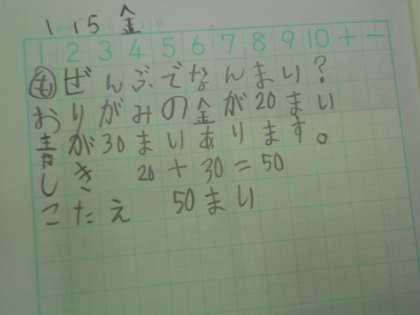 1 15 金
1 2 3 4 5 6 7 8 9 10 + −
も ぜんぶでなんまい?
おりがみの金が20まい
青が30まいあります。
しき 20+30=50
こたえ 50まい